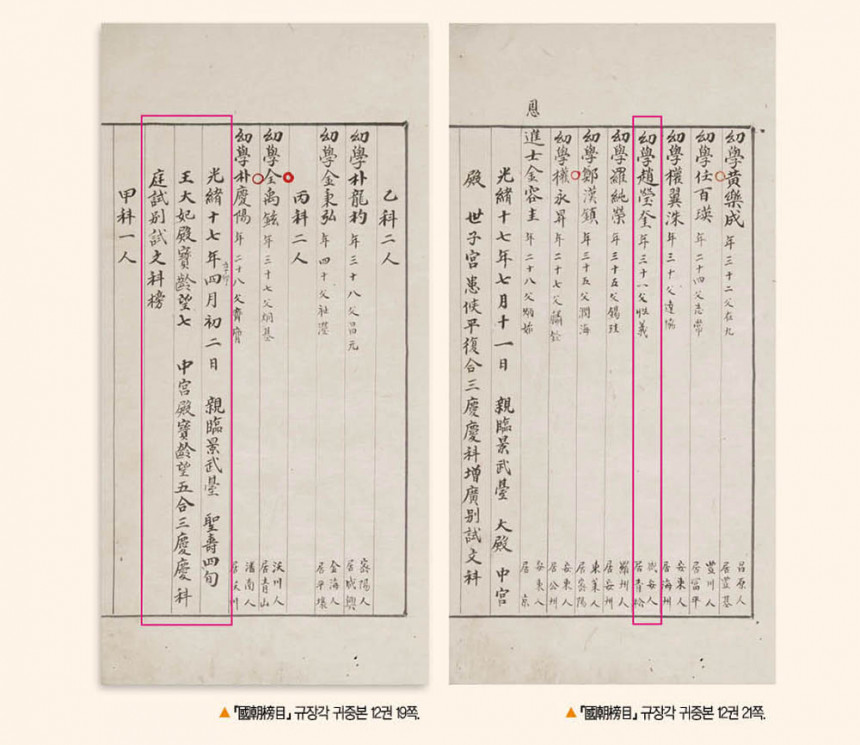 乙科二人
幼學朴龍杓 年三十八父昌元 密陽人 居咸興
幼學金秉弘 年四十父 金海人 居平壤
丙科二人
幼學全禹鉉 年三十七父炯基 沃川人 居青山
幼學朴慶陽 年二十八父齊膺 潘南人 居沃川
光緒十七年四月初二日 親臨景武臺 聖壽四旬
王大妃殿寶齡望七 中宮殿寶齡望五合三慶慶科
庭試別試文科榜
甲科一人
▲『國朝榜目』 규장각 귀중본 12권 19쪽.
幼學黃樂成 年三十二父在九 昌原人 居豊基
幼學任百瑛 年二十四父志常 豊川人 居富平
幼學權翼洙 年三十父達協 安東人 居海州
幼學趙瑩奎 年三十一父性義 咸安人 居青松
幼學羅純榮 年三十五父錫珪 羅州人 居安州
幼學鄭漢鎮 年三十五父潤海 東萊人 居密陽
幼學權永昇 年二十七父 安東人 居公州
恩 進士金容圭 年二十八父炳 安東人 居京
光緒十七年七月十一日 親臨景武臺 大殿 中宮
殿 世子宮患候平復合三慶慶科增廣別試文科
▲『國朝榜目』 규장각 귀중본 12권 21쪽.